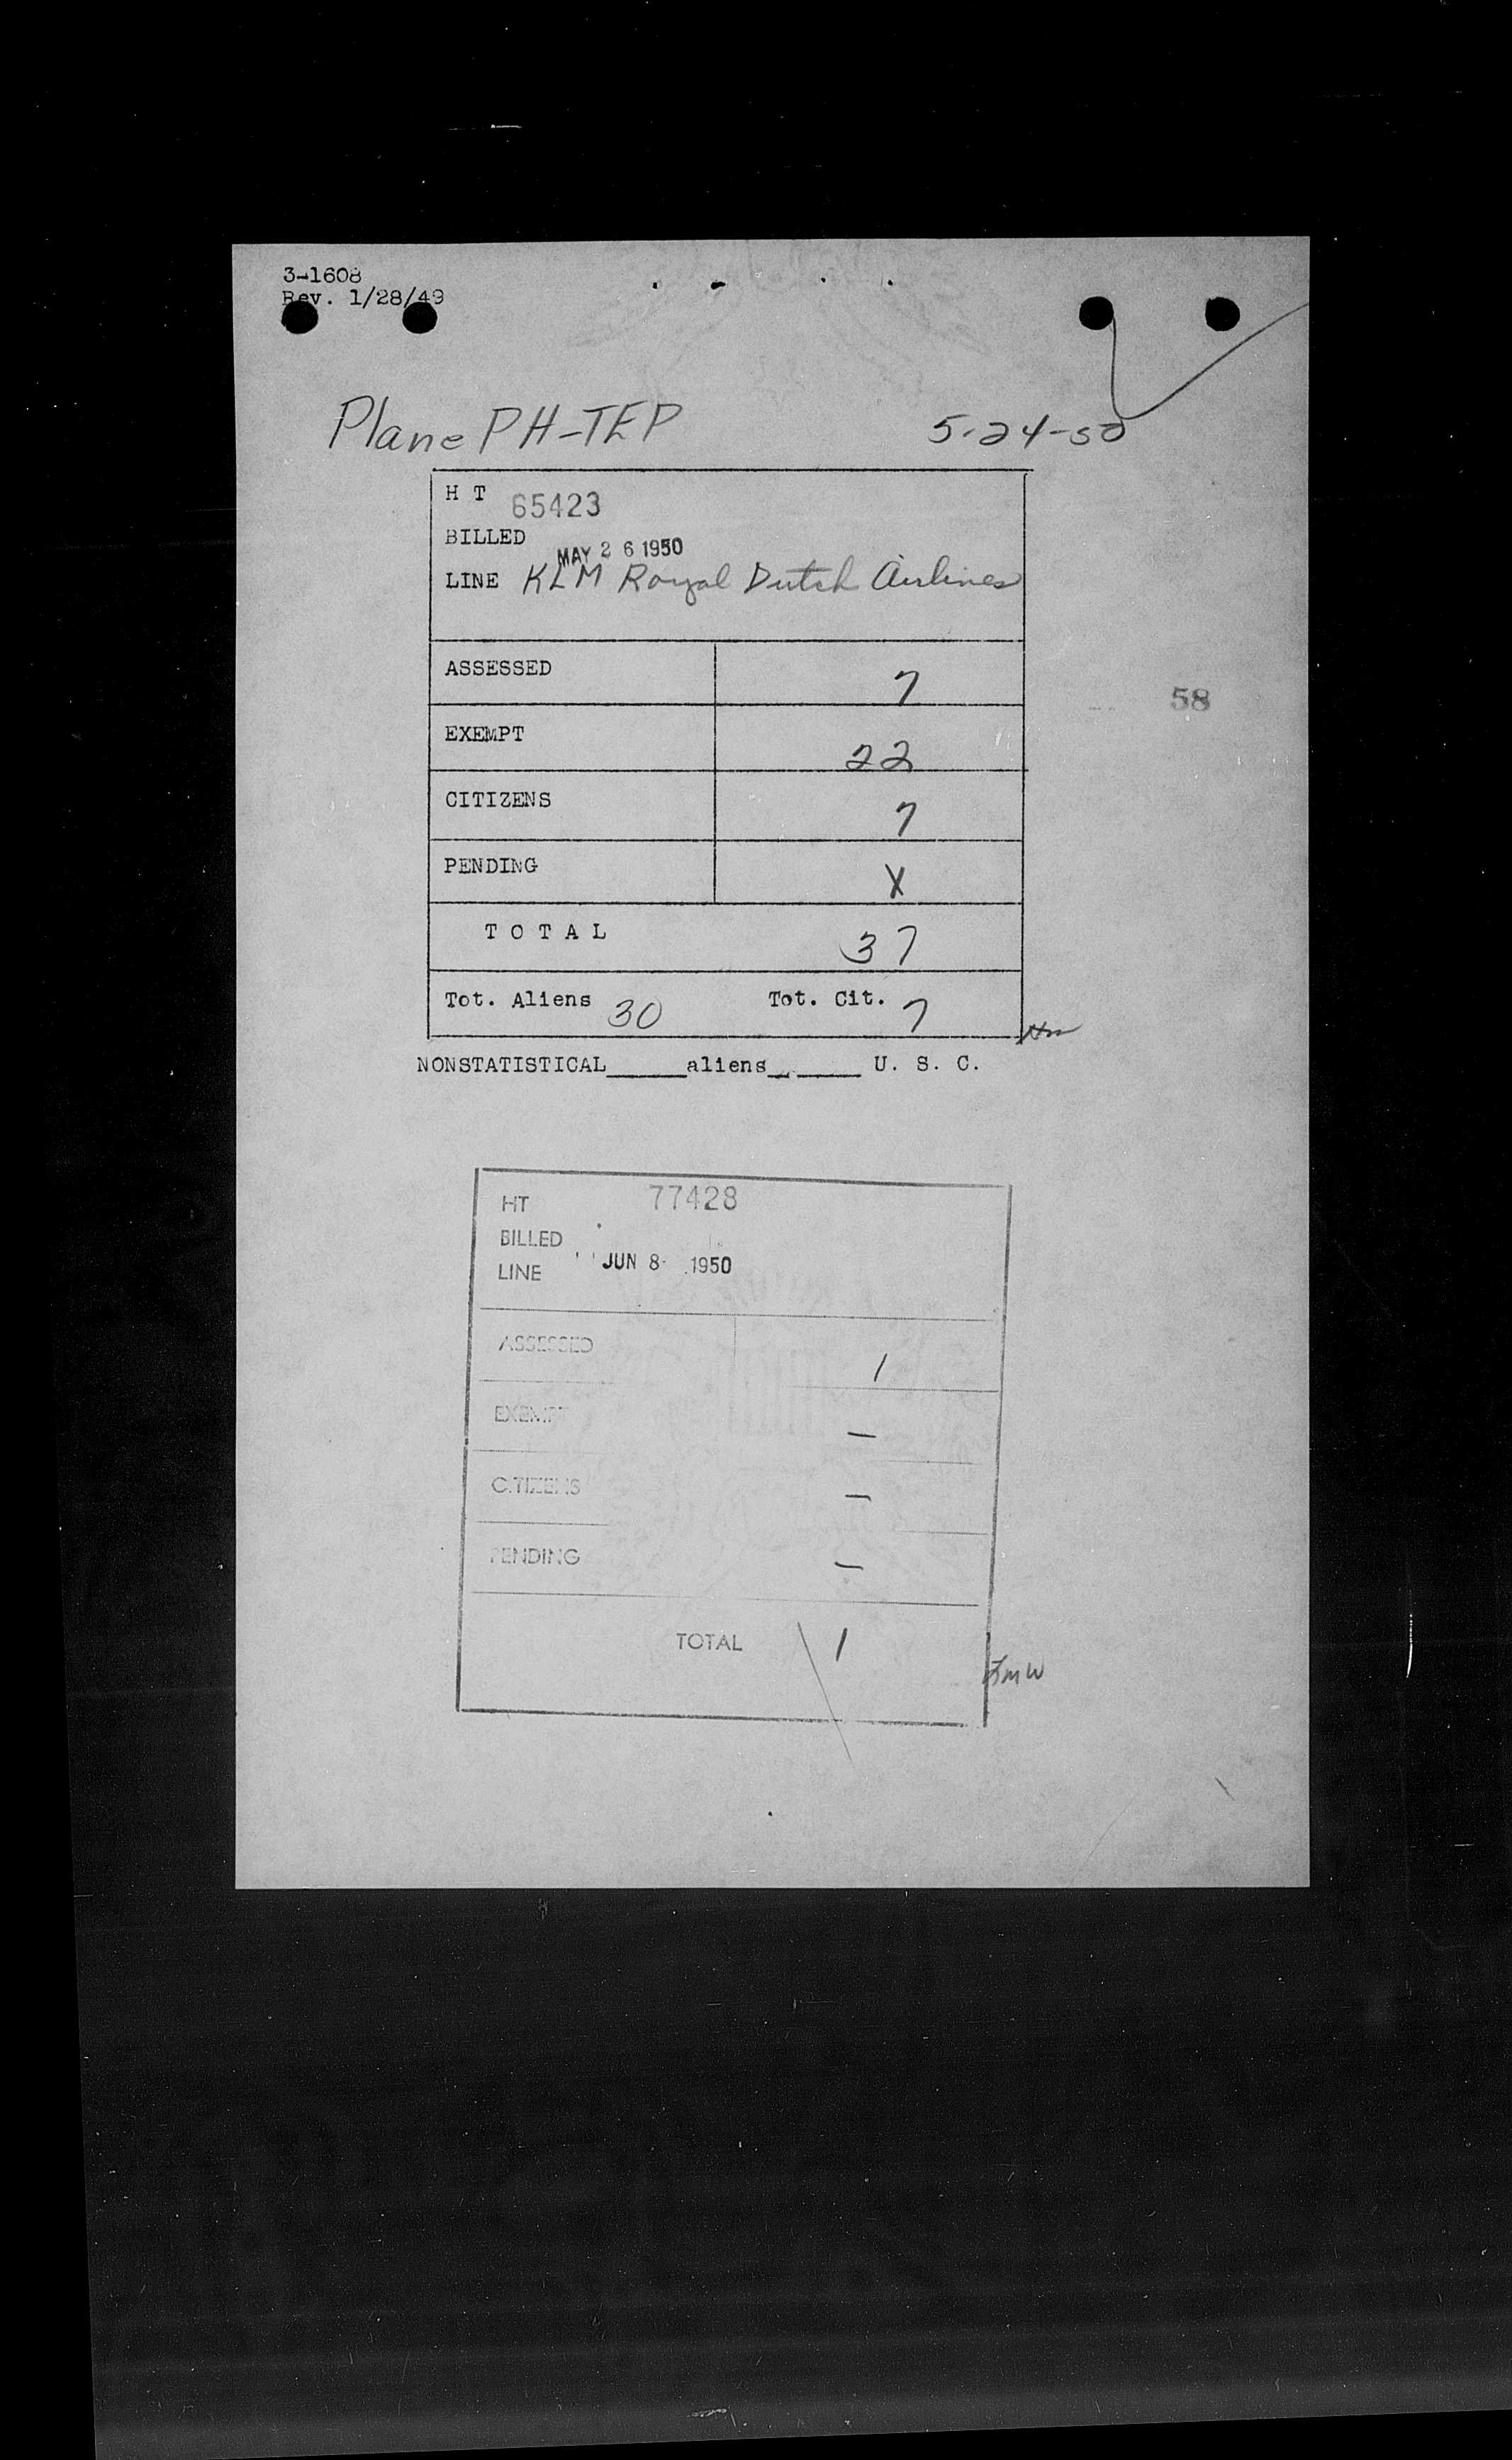 3-1608
Rev. 1/28/49
Plane PH-TEP 5-24-50
H T 65423
BILLED MAY 26 1950
LINE KLM Royal Dutch Airlines
ASSESSED 7
58
EXEMPT 22
CITIZENS 7
PENDING X
TOTAL 37
Tot. Aliens 30 Tot. Cit. 7
NONSTATISTICAL_____aliens_____ U. S. C.
HT 77428
BILLED
LINE JUN 8 1950
ASSESSED 1
EXEMPT —
CITIZENS —
PENDING —
TOTAL 1